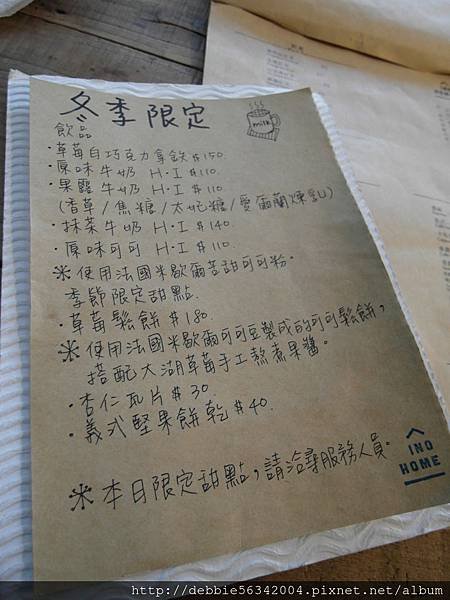 冬季限定
milk
飲品
·草莓白巧克力拿鉄 $150
·原味牛奶 H·I $110
·果露牛奶 H·I $110
(香草/焦糖/太妃糖/愛爾蘭煉乳)
·抹茶牛奶 H·I $140
·原味可可 H·I $110.
※使用法國米歇爾苦甜可可粉。
季節限定甜點.
·草莓鬆餅 $180.
※使用法國米歇爾可可豆製成的可可鬆餅，
搭配大湖草莓手工熬煮果醬。
·杏仁瓦片 $30
·義式堅果餅乾 $40.
※本日限定甜點，請洽尋服務人員。
INO
HOME
http://debbie56342004.pixnet.net/album